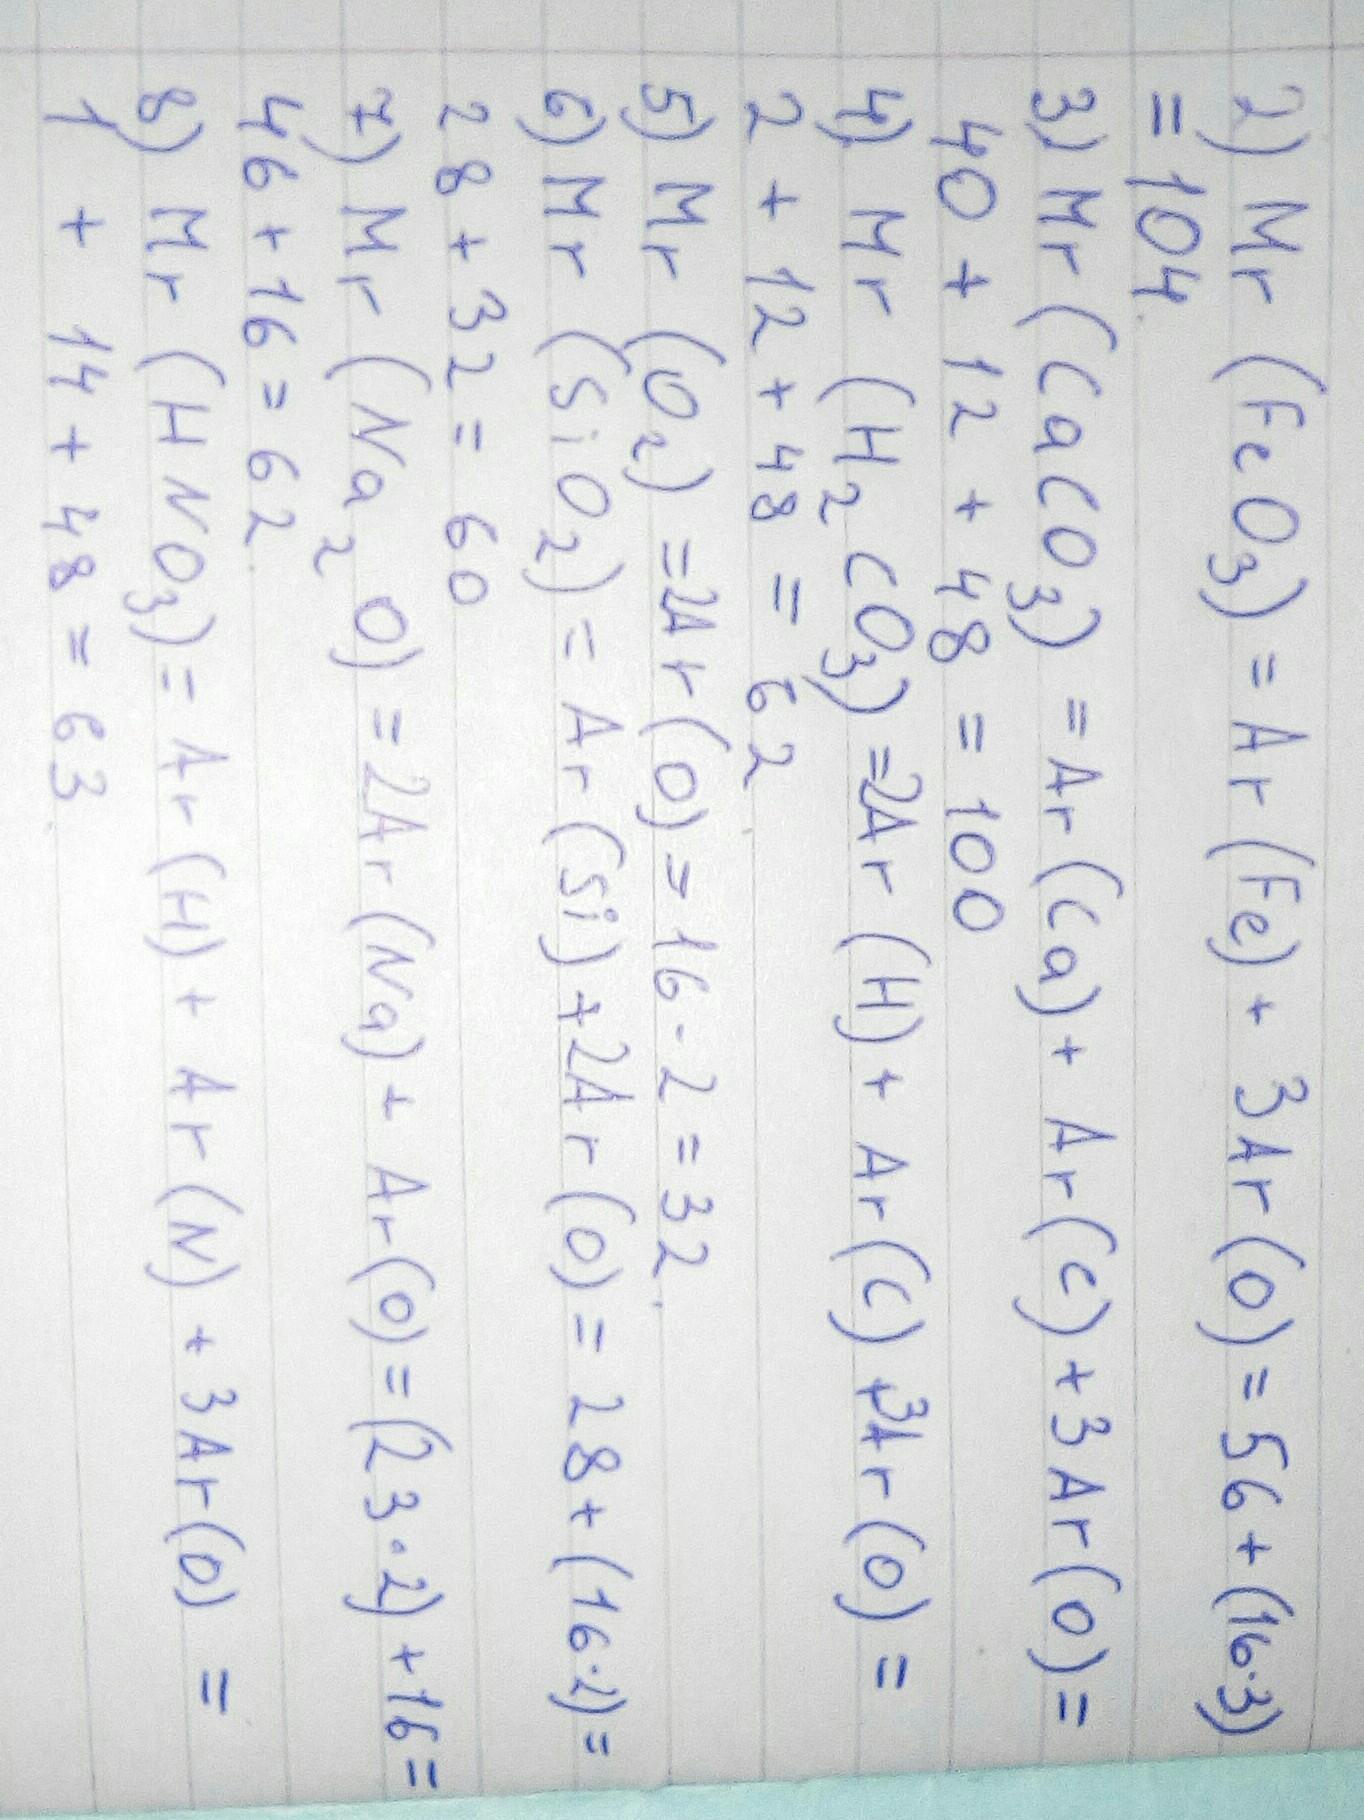 2) Mr (FeO₃) = Ar (Fe) + 3Ar (O) = 56 + (16·3)
= 104.
3) Mr (CaCO₃) = Ar (Ca) + Ar (C) + 3Ar (O) =
40 + 12 + 48 = 100
4) Mr (H₂CO₃) = 2Ar (H) + Ar (C) + 3Ar (O) =
2 + 12 + 48 = 62
5) Mr (O₂) = 2Ar (O) = 16·2 = 32.
6) Mr (SiO₂) = Ar (Si) + 2Ar (O) = 28 + (16·2) =
28 + 32 = 60
7) Mr (Na₂O) = 2Ar (Na) + Ar (O) = (23·2) + 16 =
46 + 16 = 62.
8) Mr (HNO₃) = Ar (H) + Ar (N) + 3Ar (O) =
1 + 14 + 48 = 63.